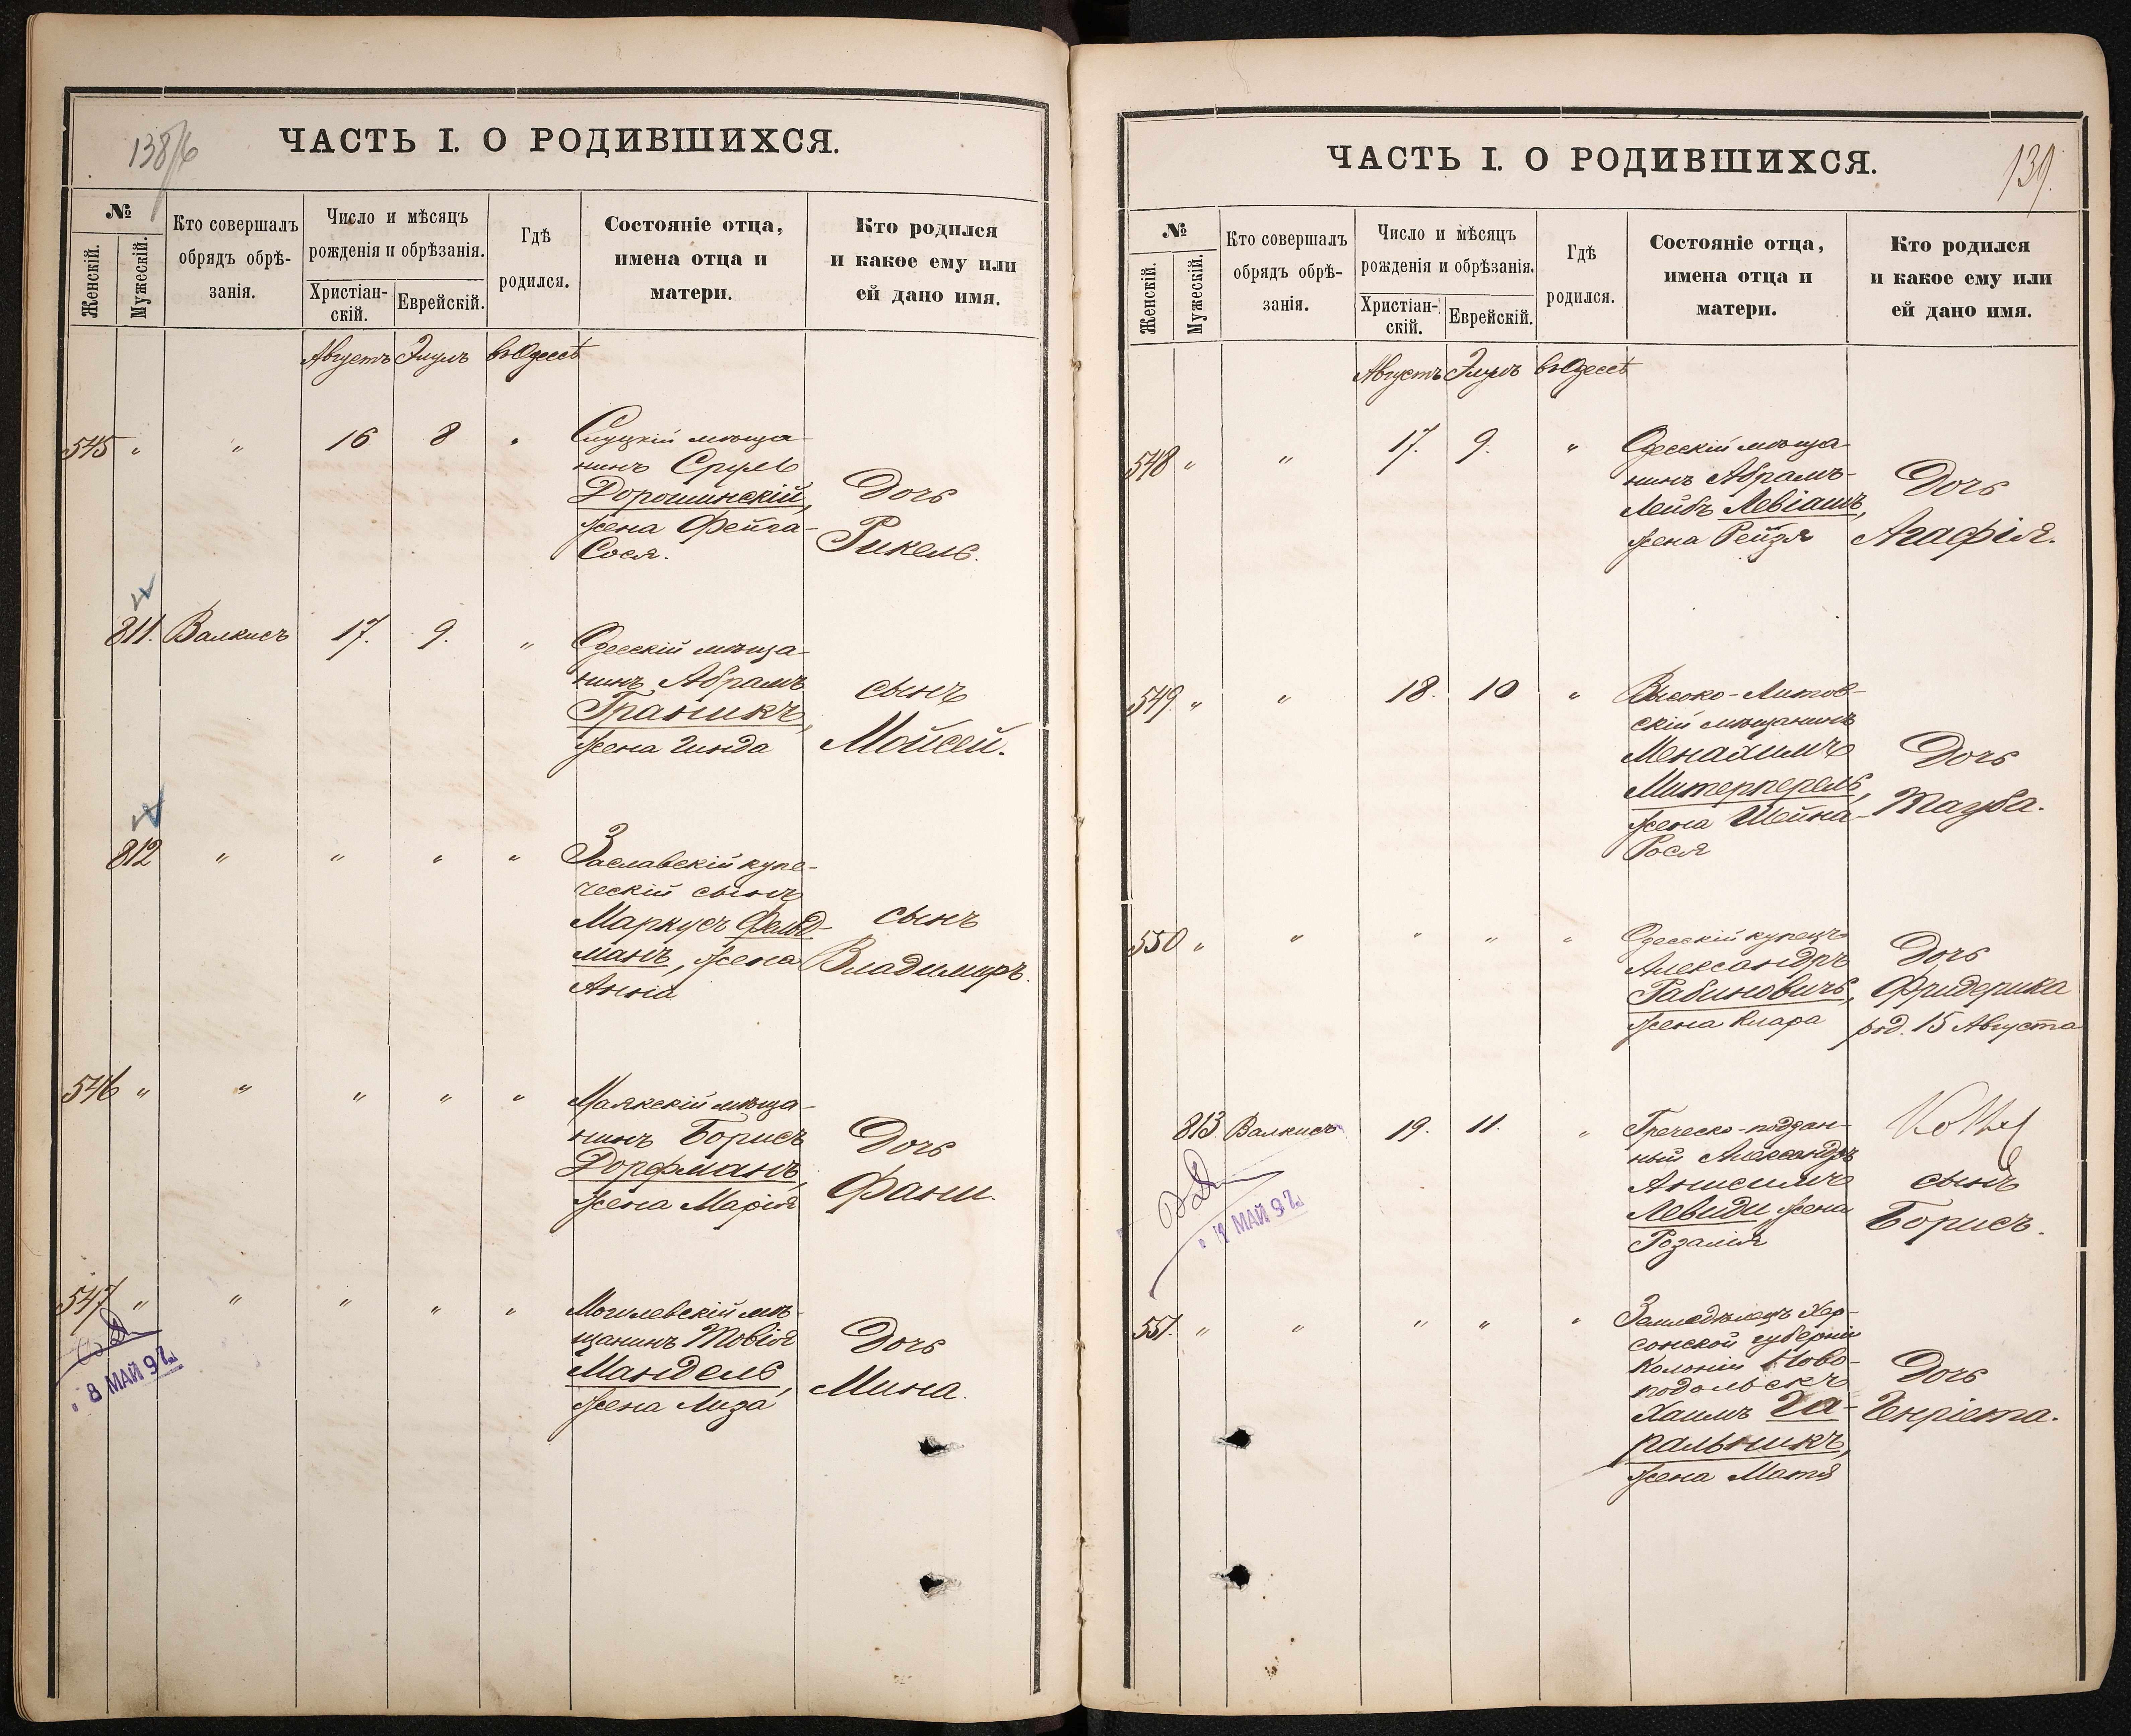 138/б
ЧАСТЬ I. О РОДИВШИХСЯ.
№
Женскій.
Мужескій.
Кто совершалъ
обрядъ обрѣ-
занія.
Число и мѣсяцъ
рожденія и обрѣзанія.
Христіан-
скій.
Еврейскій.
Гдѣ
родился.
Состояніе отца,
имена отца и
матери.
Кто родился
и какое ему или
ей дано имя.
Августъ Элулъ въ Одессѣ
545 " " 16 8 "
Слуцкій мѣща-
нинъ Сруль
Дорошинскій,
жена Фейга-
Сося.
Дочь
Рикель.
811. Валкисъ 17. 9. "
Одесскій мѣща-
нинъ Абрамъ
Граникъ,
жена Гинда
сынъ
Мойсей.
812 " " " "
Заславскій купе-
ческій сынъ
Маркусъ Фельд-
манъ, жена
Анна
сынъ
Владимиръ.
546 " " " " "
Маякскій мѣща-
нинъ Борисъ
Дорфманъ,
жена Марія
Дочь
Фани.
547 " " " " "
Могилевскій мѣ-
щанинъ Товія
Мандель,
жена Лиза
Дочь
Мина.
8 МАЙ 92
139.
ЧАСТЬ I. О РОДИВШИХСЯ.
№
Женскій.
Мужескій.
Кто совершалъ
обрядъ обрѣ-
занія.
Число и мѣсяцъ
рожденія и обрѣзанія.
Христіан-
скій.
Еврейскій.
Гдѣ
родился.
Состояніе отца,
имена отца и
матери.
Кто родился
и какое ему или
ей дано имя.
Августъ Элулъ въ Одессѣ
548 " " 17. 9. "
Одесскій мѣща-
нинъ Абрамъ-
Лейбъ Левіашъ,
жена Рейзя
Дочь
Агафія.
549 " " 18. 10 "
Высоко-Литов-
скій мѣщанинъ
Менахимъ
Митерперель,
жена Шейна-
Рося
Дочь
Тауба.
550 " " " " "
Одесскій купецъ
Александръ
Рабиновичъ,
жена Клара
Дочь
Фридерика
род. 15 Августа
813. Валкисъ 19. 11. "
Греческо-поддан-
ный Александръ
Анисимъ
Левиди жена
Розалія
сынъ
Борисъ.
МАЙ 92
551. " " " " "
Земледѣлецъ Хер-
сонской губерніи
Колоніи Ново-
подольскъ
Хаимъ Га-
ральникъ,
жена Матя
Дочь
Генріета.